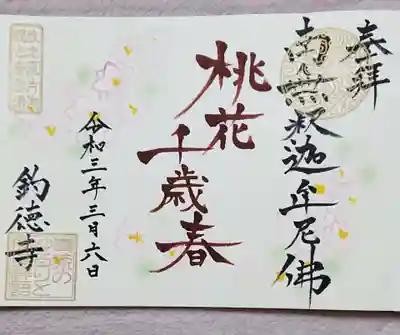 奉拜
南無釈迦牟尼佛
桃花千歳春
令和三年三月六日
釣徳寺